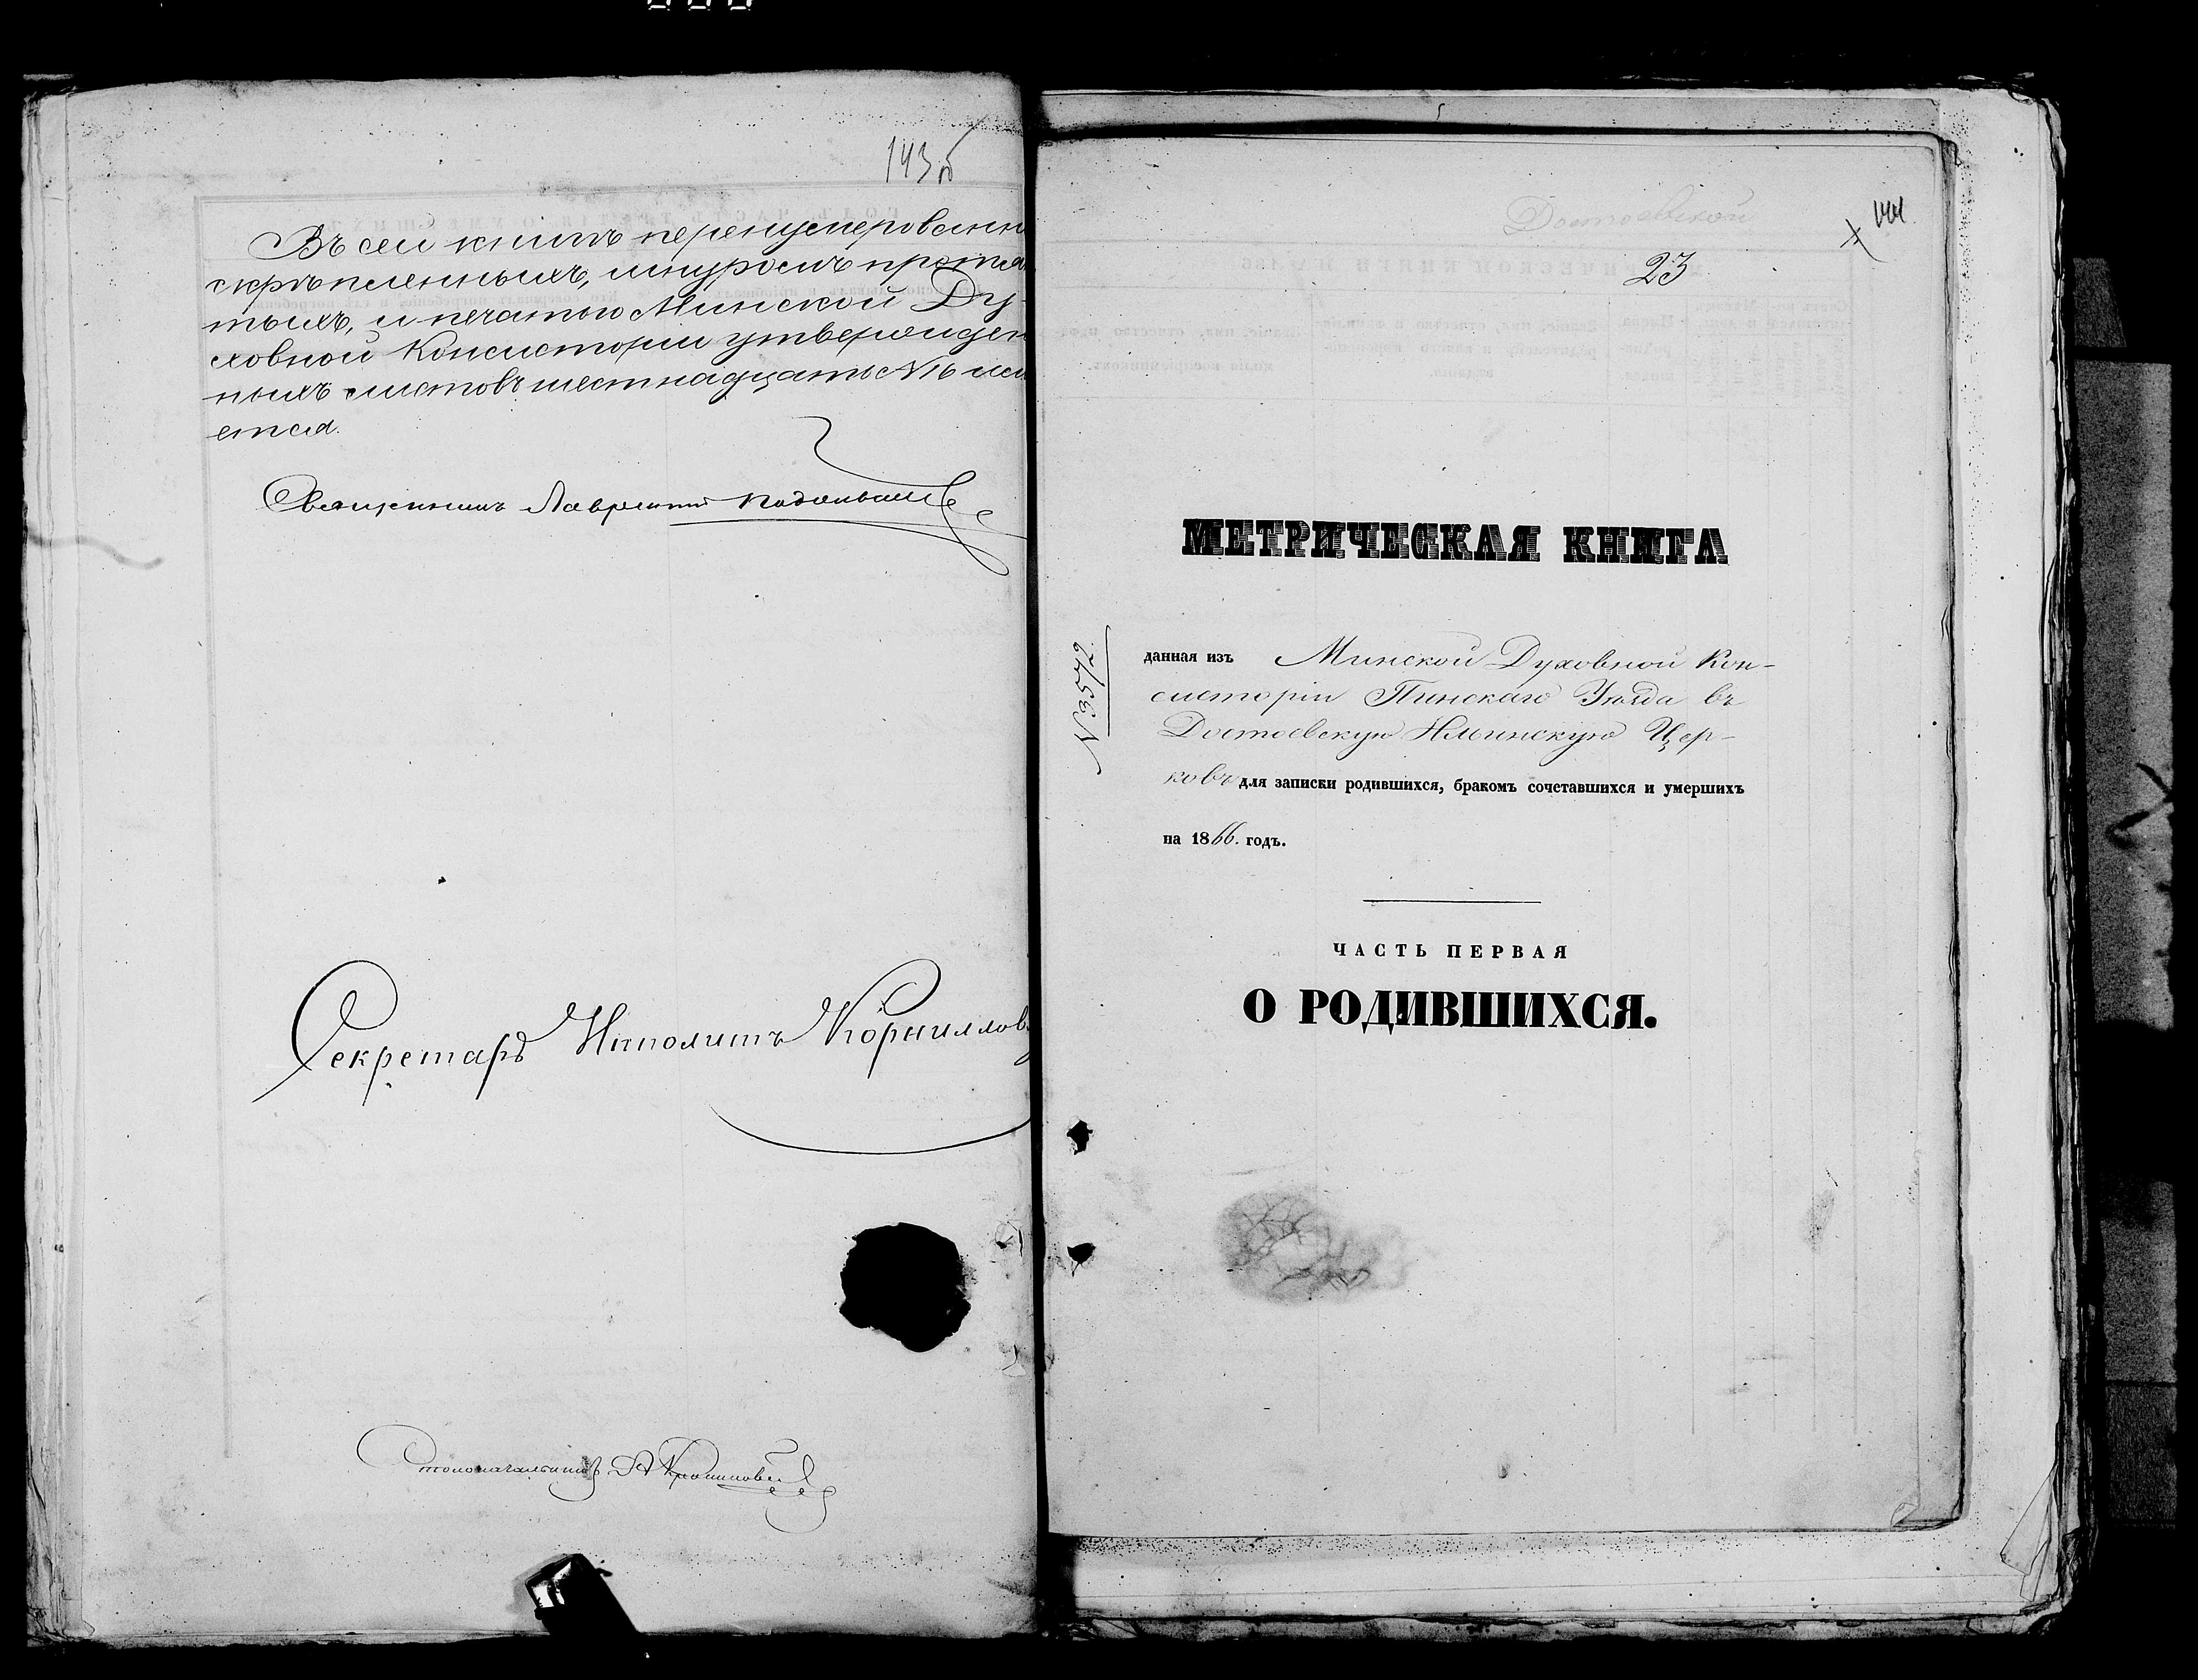 143 об
Въ сей книгѣ перенумерованн
скрѣпленныхъ, шнуромъ протя
тыхъ, и печатью Минской Ду-
ховной Консисторіи утвержден
ныхъ листовъ шестнадцать №16 им
ется.
Священникъ Лаврентій
Секретарь Ипполитъ Корниллов
Столоначальникъ
Достоевской
144
23
МЕТРИЧЕСКАЯ КНИГА
N 3572.
данная изъ Минской Духовной Кон-
систоріи Пинскаго Уѣзда въ
Достоевскую Ильинскую Цер-
ковь для записки родившихся, бракомъ сочетавшихся и умершихъ
на 1866. годъ.
ЧАСТЬ ПЕРВАЯ
О РОДИВШИХСЯ.